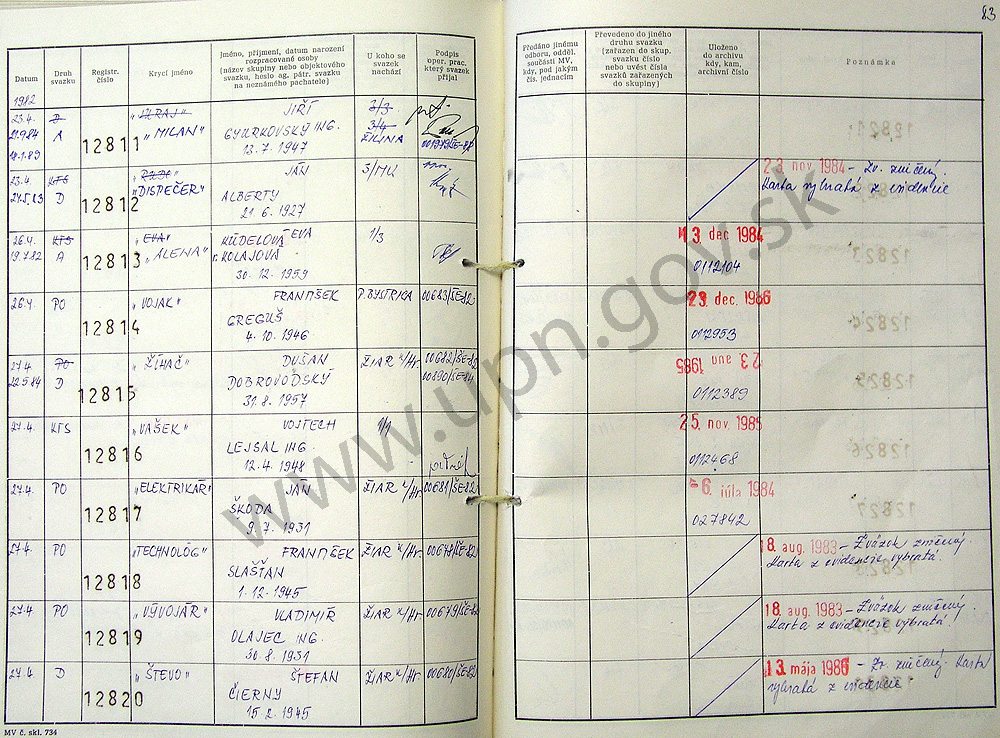 83
Datum
Druh svazku
Registr. číslo
Krycí jméno
Jméno, příjmení, datum narození
rozpracované osoby
(název skupiny nebo objektového
svazku, heslo ag. pátr. svazku
na neznámého pachatele)
U koho se
svazek
nachází
Podpis
oper. prac.
který svazek
přijal
Předáno jinému
odboru, odděl.
součásti MV,
kdy, pod jakým
čís. jednacím
Převedeno do jiného
druhu svazku
(zařazen do skup.
svazku číslo
nebo uvést čísla
svazků zařazených
do skupiny)
Uloženo
do archivu
kdy, kam,
archivní číslo
Poznámka
1982
23.4. D JIŘÍ 3/3
A 12811 "MILAN" GYURKOVSKÝ ING. 3/4
13.7.1947 ŽILINA
23.4. KTS JÁN 3/MU 23. nov. 1984 - Zv. zničený.
D 12812 "DISPEČER" ALBERTY Karta vybratá z evidencie
21.6.1927
26.4. KTS "EVA" KÚDELOVÁ EVA 1/3 13. dec 1984
19.7.82 A 12813 "ALENA" r. KOLAJOVÁ 0112104
30.12.1959
26.4. PO "VOJAK" FRANTIŠEK P. BYSTRICA 00683/ŠE-82 23. dec. 1986
12814 GREGUŠ 0112953
4.10.1946
27.4. PO "ŽÍHAČ" DUŠAN ŽIAR n/Hr 00682/ŠE-82 1985
22.5.84 D 12815 DOBROVODSKÝ 00890/ŠE-84 0112389
31.8.1957
27.4. KTS "VAŠEK" VOJTECH 1/1 25. nov. 1985
12816 LEJSAL ING. 0112468
12.4.1948
27.4. PO "ELEKTRIKÁŘ" JÁN ŽIAR n/Hr 00681/ŠE-82 6. júla 1984
12817 ŠKODA 027842
9.7.1931
27.4. PO "TECHNOLÓG" FRANTIŠEK ŽIAR n/Hr 00678/ŠE-82 18. aug. 1983 - Zväzok zničený.
12818 SLAŠŤAN Karta z evidencie vybratá.
1.12.1945
27.4. PO "VÝVOJÁŘ" VLADIMÍR ŽIAR n/Hr 00679/ŠE-82 18. aug. 1983 - Zväzok zničený.
12819 OLAJEC ING. Karta z evidencie vybratá
30.8.1931
27.4. D "ŠTEVO" ŠTEFAN ŽIAR n/Hr 00680/ŠE-82 13. mája 1986 - Zv. zničený. Karta
12820 ČIERNY vybratá z evidencie
15.2.1945
MV č. skl. 734
www.upn.gov.sk